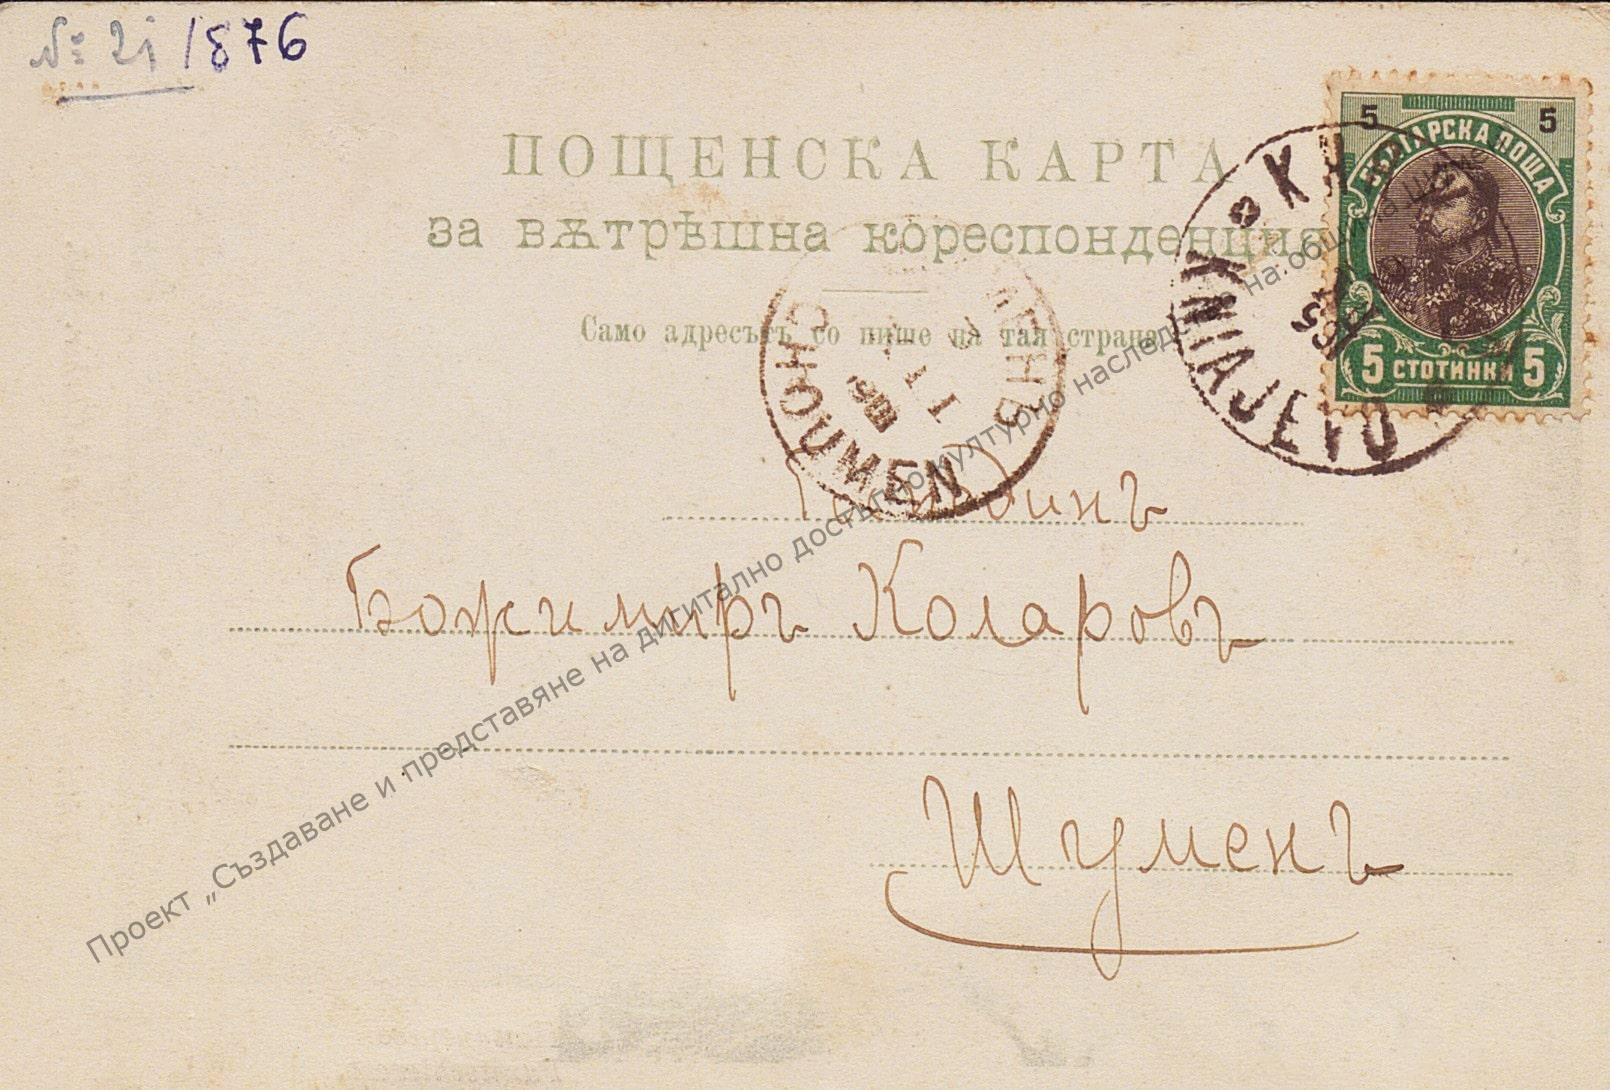 № 21/876
ПОЩЕНСКА КАРТА
за вѫтрѣшна кореспонденция
Само адресътъ се пише на тая страна
5 5
БЪЛГАРСКА ПОЩА
5 СТОТИНКИ 5
KNIAJEVO
CHOUMEN
Господинъ
Божимиръ Коларовъ
Шуменъ
Проект „Създаване и представяне на дигитално достъпно културно наследство на община Шумен